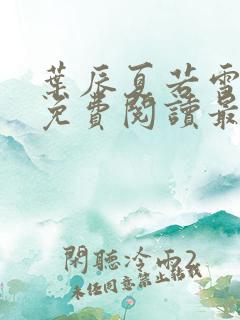 葉辰夏若雪
免費閱讀最
閑聽冷雨2
未經同意禁止轉載